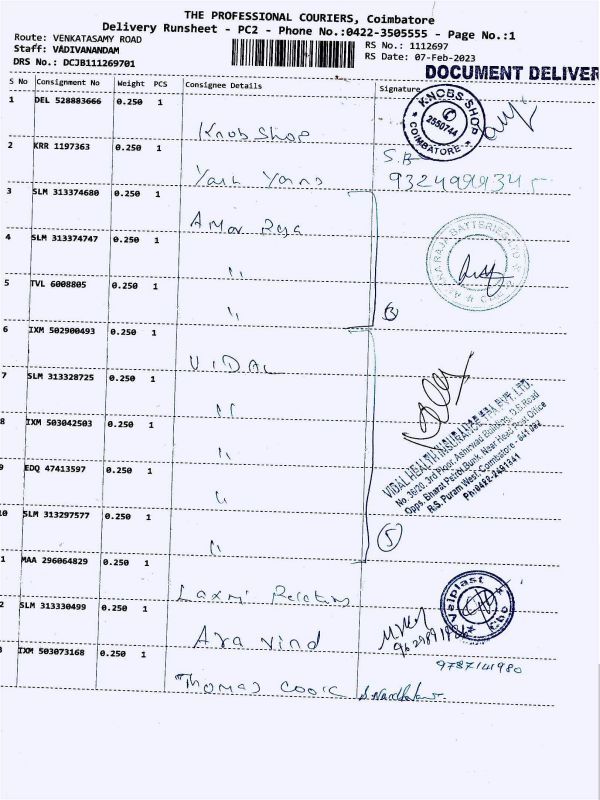 THE PROFESSIONAL COURIERS, Coimbatore
Delivery Runsheet - PC2 - Phone No.:0422-3505555 - Page No.:1
Route: VENKATASAMY ROAD
RS No.: 1112697
Staff: VADIVANANDAM
RS Date: 07-Feb-2023
DRS No.: DCJB111269701
DOCUMENT DELIVER
S No Consignment No Weight PCS Consignee Details Signature
1 DEL 528883666 0.250 1
Knob Shop
KNOBS SHOP
2550744
COIMBATORE
2 KRR 1197363 0.250 1
S.B
Yash Yarns
9324999345
3 SLM 313374680 0.250 1
Amar Raja
4 SLM 313374747 0.250 1
"
5 TVL 6008805 0.250 1
"
3
6 IXM 502900493 0.250 1
VIDAL
7 SLM 313328725 0.250 1
"
8 IXM 503042503 0.250 1
"
9 EDQ 47413597 0.250 1
"
10 SLM 313297577 0.250 1
"
5
VIDAL HEALTH INSURANCE TPA PVT LTD.
No. 36/20, 3rd Floor, Ashirwad Building, D.B. Road
Opps. Bharat Petrol Bunk, Near Head Post Office
R.S. Puram West, Coimbatore - 641 002
1 MAA 296064829 0.250 1
Laxmi
2 SLM 313330499 0.250 1
Aravind
Valplast
3 IXM 503073168 0.250 1
9787141980
Thomas Cook